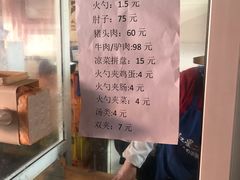 火勺：1.5 元
肘子：75 元
猪头肉：60 元
牛肉/驴肉:98 元
凉菜拼盘：15 元
火勺夹鸡蛋:4 元
火勺夹肠:4 元
火勺夹菜：4 元
汤类:4 元
双夹：7 元